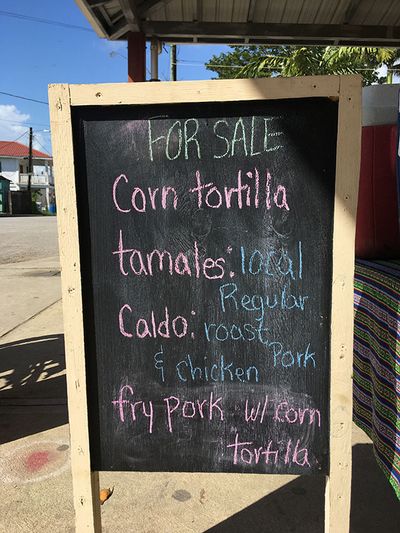 FOR SALE
Corn tortilla
tamales: local
Regular
Caldo: roast
Pork
& chicken
fry pork w/ corn
tortilla